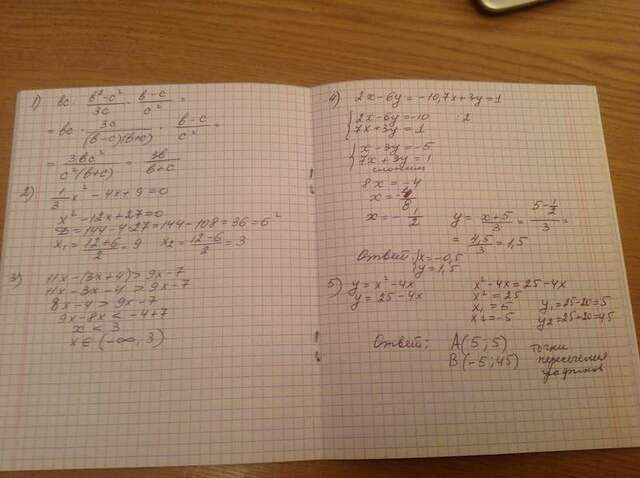 1) bc : b²-c²/3c · b-c/c² =
= bc · 3c/(b-c)(b+c) · b-c/c² =
= 3bc²/c²(b+c) = 3b/b+c
2) 1/3 x² - 4x + 9 = 0
x² - 12x + 27 = 0
D = 144 - 4·27 = 144 - 108 = 36 = 6²
x₁ = 12+6/2 = 9 x₂ = 12-6/2 = 3
3) 11x - (3x+4) > 9x - 7
11x - 3x - 4 > 9x - 7
8x - 4 > 9x - 7
9x - 8x < -4 + 7
x < 3
x ∈ (-∞; 3)
4) 2x - 6y = -10, 7x + 3y = 1
{ 2x - 6y = -10 :2
7x + 3y = 1
{ x - 3y = -5
7x + 3y = 1
сложим
8x = -4
x = -4/8
x = -1/2 y = x+5/3 = 5-1/2/3 =
= 4,5/3 = 1,5
Ответ: { x = -0,5
y = 1,5
5) y = x² - 4x x² - 4x = 25 - 4x
y = 25 - 4x x² = 25
x₁ = 5 y₁ = 25 - 20 = 5
x₂ = -5 y₂ = 25 + 20 = 45
Ответ: A(5; 5) точки
B(-5; 45) пересечения
графиков